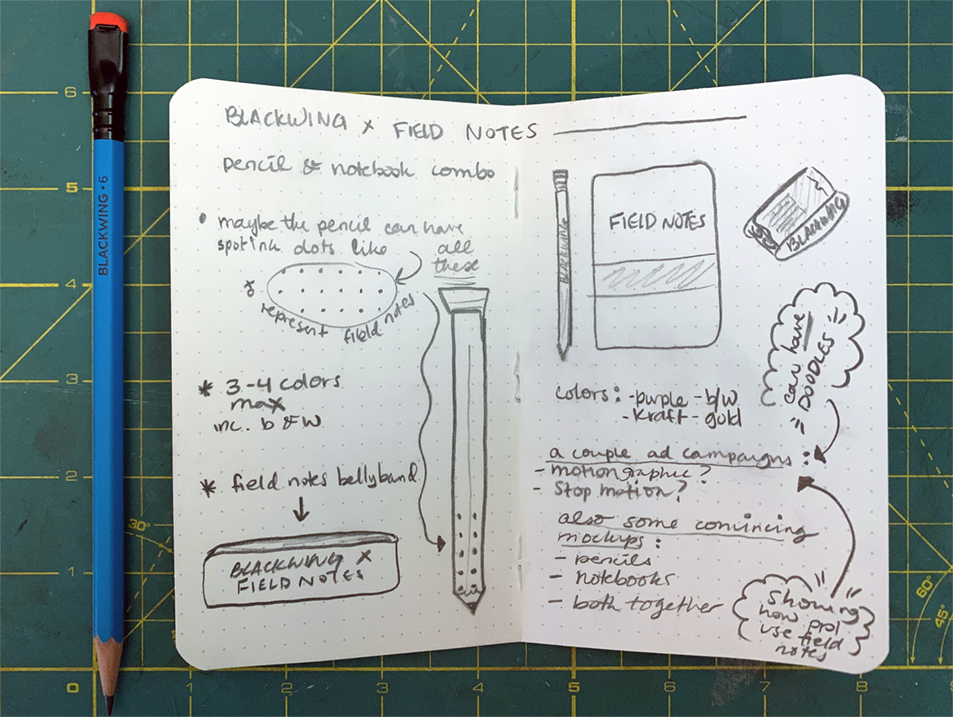 BLACKWING • 6
BLACKWING x FIELD NOTES
pencil & notebook combo
• maybe the pencil can have
spot ink dots like
all
these
* represent field notes
* 3-4 colors
max
inc. b & w
* field notes bellyband
BLACKWING x
FIELD NOTES
BLACKWING
FIELD NOTES
BLACKWING
can have
DOODLES
colors: -purple -b/w
-Kraft -gold
a couple ad campaigns:
- motion graphic?
- Stop motion?
also some convincing
mockups:
- pencils
- notebooks
- both together
showing
how ppl
use field
notes
6
5
4
3
2
1
0
1
2
3
4
5
6
7
8
30°
60°
45°